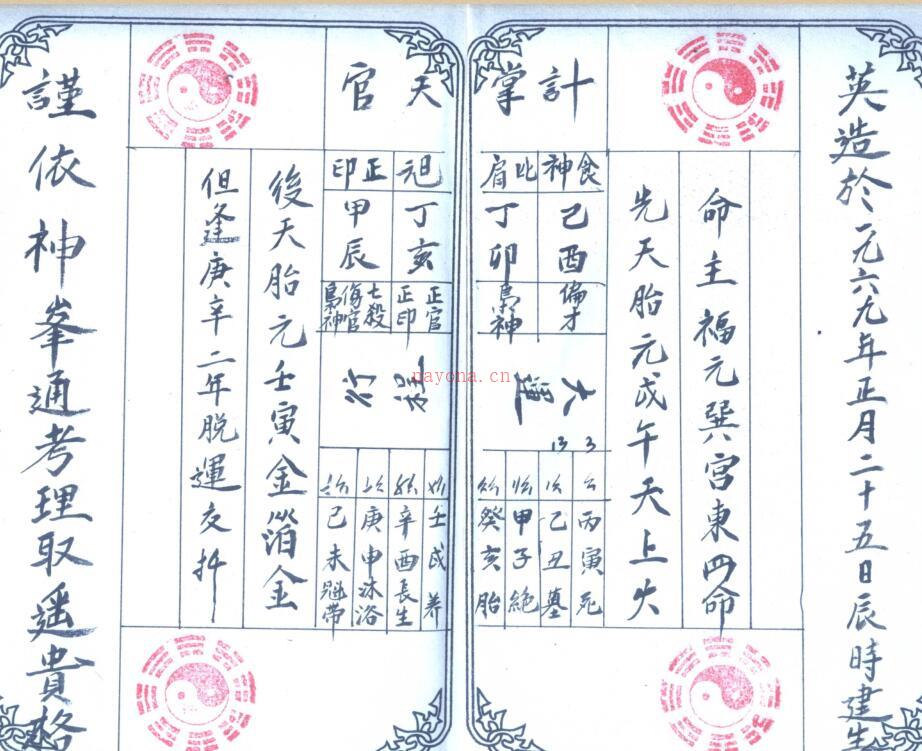 英造於一九六九年正月二十五日辰時建生
命主福元巽宮東四命
先天胎元戊午天上火
計掌天官
食神
己酉
偏才
比肩
丁卯
梟神
丁亥
正官
正印
正印
甲辰
七殺
傷官
梟神
大運
3
13
丙寅死
乙丑墓
甲子絕
癸亥胎
壬戌养
辛酉長生
庚申沐浴
己未冠帶
後天胎元壬寅金箔金
但逢庚辛二年脱運交
謹依神峯通考理取遥貴格
nayona.cn